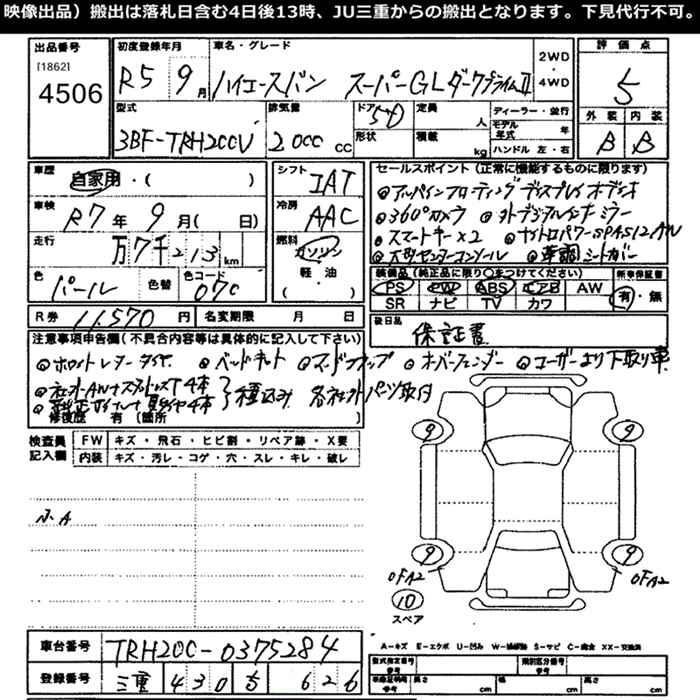 映像出品）搬出は落札日含む4日後13時、JU三重からの搬出となります。下見代行不可。
出品番号 初度登録年月 車名・グレード 2WD ・ 4WD 評価点
[1862]
4506 R5 9月 ハイエースバン スーパーGLダークプライムⅡ 5
型式 排気量 ドア 形状 定員 人 積載 kg ディーラー・並行 モデル年式 年 ハンドル 左・右 外装 内装
3BF-TRH200V 2000cc 5D B B
車歴 自家用・( ) シフト IAT セールスポイント（正常に機能するものに限ります）
◎アルパインフローティングディスプレイオーディオ
車検 R7年 9月( 日) 冷房 AAC ◎360°カメラ ◎デジタルインナーミラー
◎スマートキー×2
走行 万7千213km 燃料 ガソリン 軽・油 ( ) ◎大型センターコンソール ◎革調シートカバー
色 パール 色替 色コード 070 装備品（純正品に限り○をつけてください） 新車保証書
PS PW ABS エアB AW 有・無
SR ナビ TV カワ
R券 11,570円 名変期限 月 日 後日品 保証書
注意事項申告欄（不具合内容等は具体的に記入して下さい）
◎ホワイトレタータイヤ ◎ベッドキット ◎マッドフラップ ◎オーバーフェンダー ◎ユーザーより下取り車
4本 積込み 各社外パーツ取付
修復歴 有 （箇所 ）
検査員記入欄 FW キズ・飛石・ヒビ割・リペア跡・X要
内装 キズ・汚レ・コゲ・穴・スレ・キレ・破レ
小A
9 9
9 9
OFA2 OFA2
10
スペア
車台番号 TRH200-0375284
A-キズ E-エクボ U-凹み W-補修跡 S-サビ C-腐食 XX-交換済
登録番号 三重 430 ち 626
型式指定番号 参考 類別区分番号 参考
車検証記載 参考 長さ cm 幅 cm 高さ cm